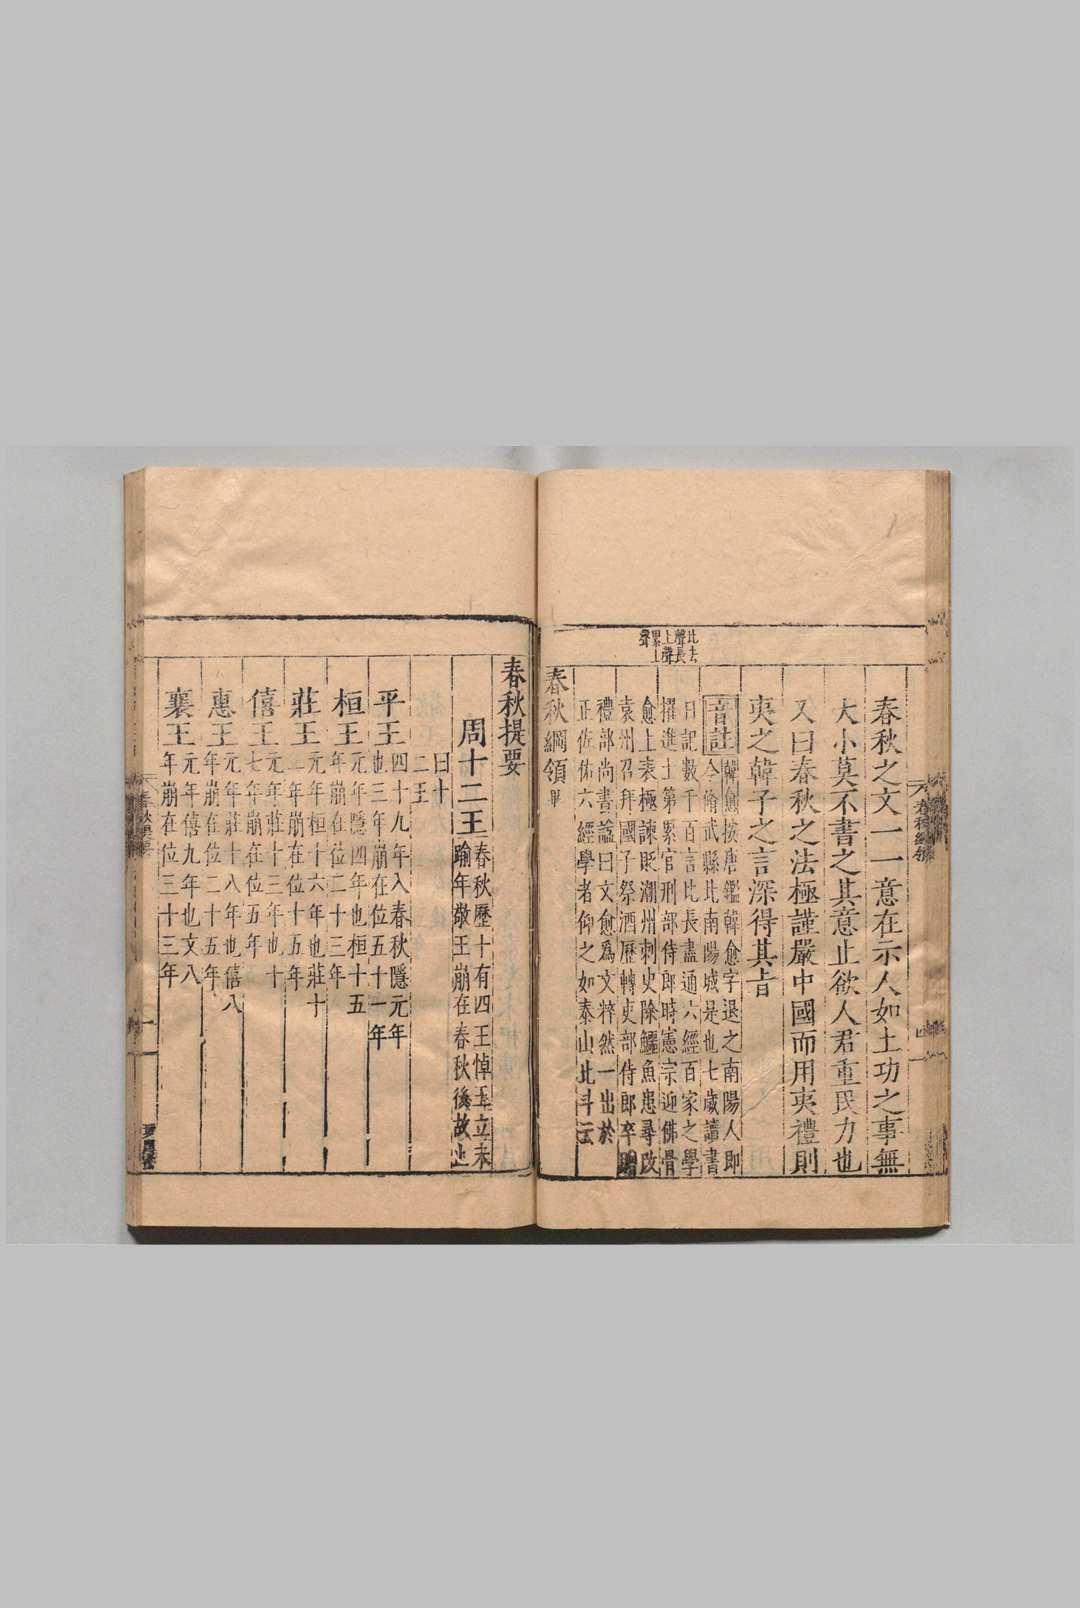 比去
聲長
上聲
累上
聲
春秋之文一一意在示人如土功之事無
大小莫不書之其意止欲人君重民力也
又曰春秋之法極謹嚴中國而用夷禮則
夷之韓子之言深得其旨
音註
韓愈按唐鑑韓愈字退之南陽人即
今脩武縣北南陽城是也七歲讀書
日記數千百言比長盡通六經百家之學
擢進士第累官刑部侍郎時憲宗迎佛骨
愈上表極諫貶潮州刺史除鱷魚患尋改
袁州召拜國子祭酒歷轉吏部侍郎卒贈
禮部尚書諡曰文愈爲文粹然一出於
正佐佑六經學者仰之如泰山北斗云
春秋綱領畢
春秋提要
周十二王
春秋歷十有四王悼王立未
踰年敬王崩在春秋後故止
曰十
二王
平王
四十九年入春秋隱元年
也三年崩在位五十一年
桓王
元年隱四年也桓十五
年崩在位二十三年
莊王
元年桓十六年也莊十
二年崩在位十五年
僖王
元年莊十三年也十
七年崩在位五年
惠王
元年莊十八年也僖八
年崩在位二十五年
襄王
元年僖九年也文八
年崩在位三十三年
一